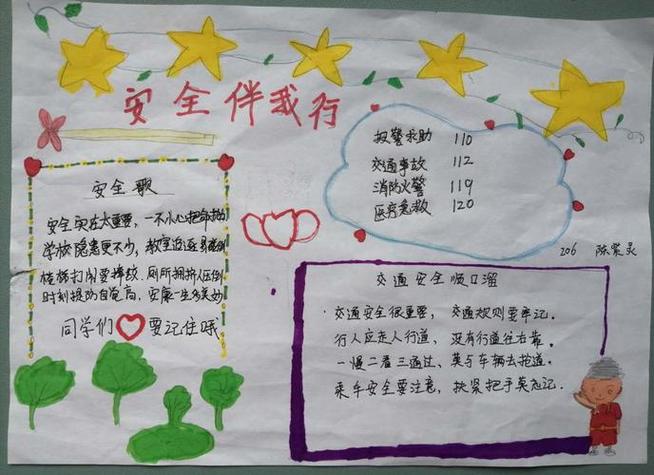 安全伴我行
报警求助 110
交通事故 112
消防火警 119
医疗急救 120
206 陈紫灵
安全歌
安全实在太重要，一不小心把命
学校隐患更不少，教室追逐易
楼梯打闹要摔跤，厕所拥挤人压倒
时刻提防自免高，安康一生多美妙
同学们 要记住哦
交通安全顺口溜
交通安全很重要，交通规则要牢记．
行人应走人行道，没有行道往右靠．
一慢二看三通过，莫与车辆去抢道．
乘车安全要注意，扶紧把手莫忘记．